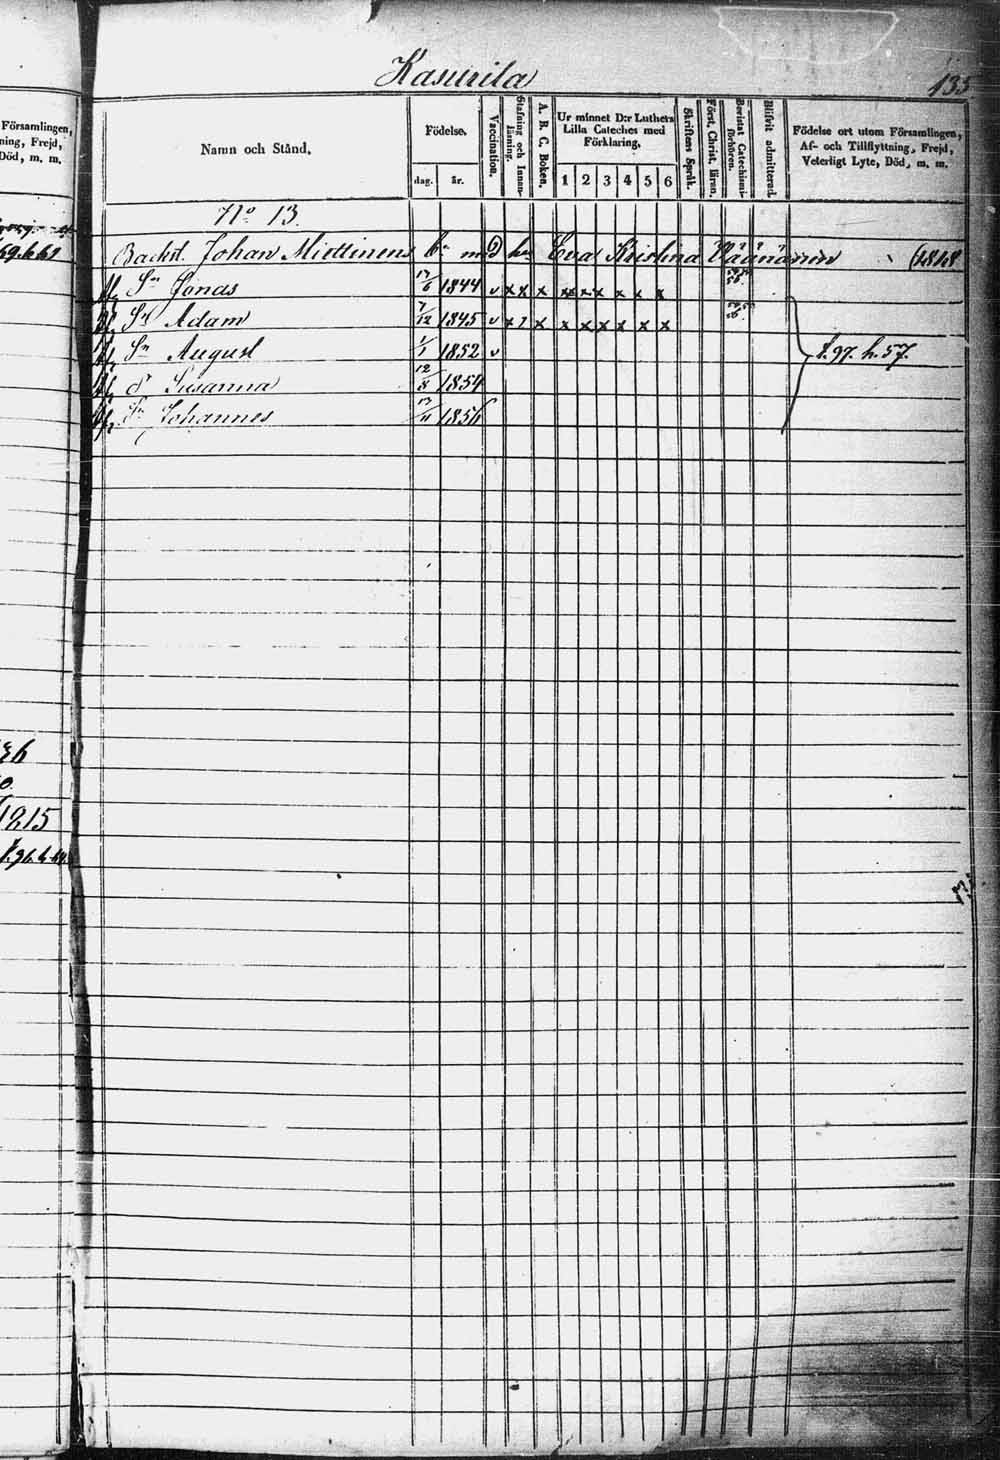 Kasurila
135
Församlingen,
ning, Frejd,
Död, m. m.
Namn och Stånd.
Födelse.
dag. år.
Vaccination.
Stafning och Innan-läsning.
A. B. C. Boken.
Ur minnet D:r Luthers
Lilla Cateches med
Förklaring,
1 2 3 4 5 6
Skriftens Språk.
Först. Christ. läran.
Bevistat Catechismi-förhören.
Blifvit admitterad.
Födelse ort utom Församlingen,
Af- och Tillflyttning, Frejd,
Veterligt Lyte, Död, m. m.
No 13.
Backst. Johan Miettinens bn med hu Eva Kristina Väänänen (1818
Sn Jonas 17/6 1844 v x x x x x x x x x
Sn Adam 7/12 1845 v x 7 x x x x x x x
Sn August 1/1 1852 v
f. 97. h. 57.
dr Susanna 12/8 1854
Sn Johannes 13/11 1856
36
1215
f. 91. h. 44.